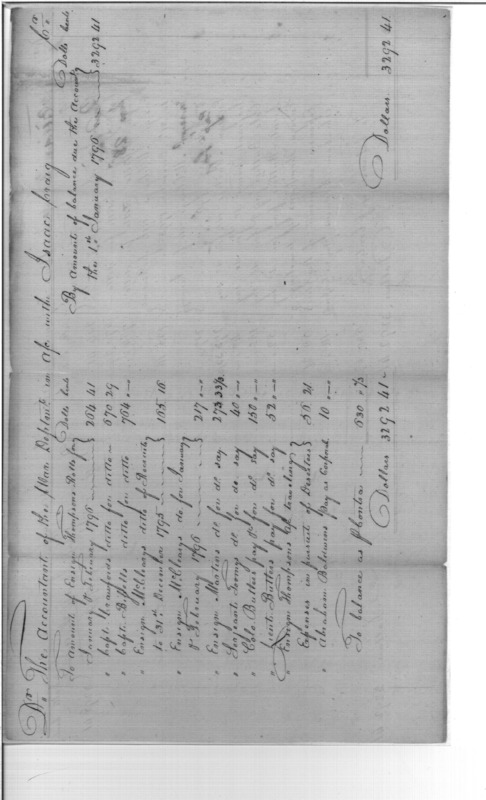 Dr. The Accountant of the War Deptmt in a/c with Isaac Craig Cr
Dolls Cents
To Amount of Ensign Thompsons Rolls for
January & February 1796 264 41
" Capt. Crawfords ditto for ditto 670 29
" Capt. Bissells ditto for ditto 764 "
" Ensign McClearys ditto of Recruits
to 31st December 1795 165 16
" Ensign McClearys do for January
& February 1796 217 "
" Ensign Masters do for do say 273 33/3
" Serjeant do for do say 40 "
" Colo. Butlers pay &c for do say 150 "
" Lieut. Butlers pay for do say 52 "
" Ensign Thompsons a/c traveling
Expenses in pursuit of Deserters 56 21
" Abraham Baldwins Pay as 10 "
To balance as 630
Dollars 3292 41
Dolls Cents
By Amount of balance due the Account
the 1st January 1796 3292 41
Dollars 3292 41